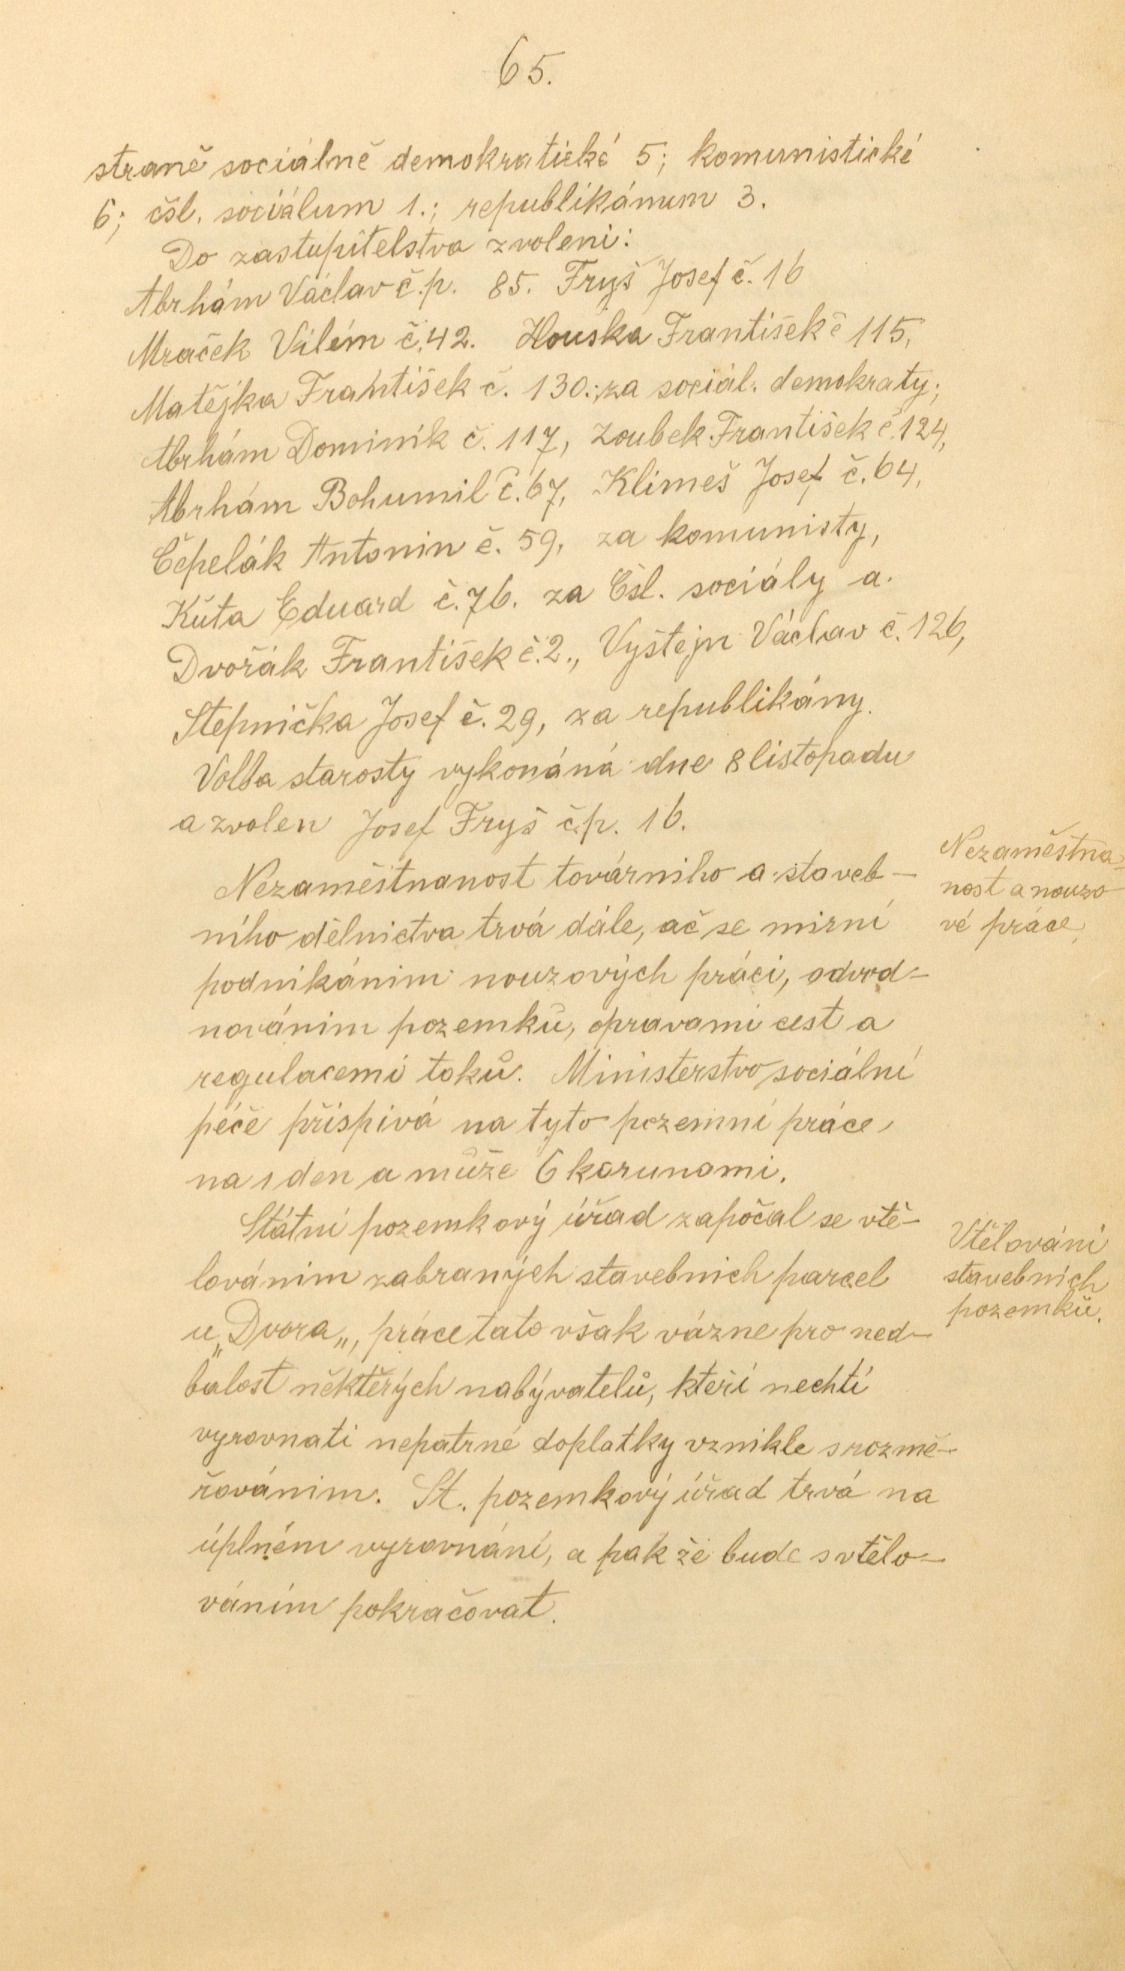 65.
straně sociálně demokratické 5; komunistické
6; čsl. sociálum 1.; republikánum 3.
Do zastupitelstva zvoleni:
Abrhám Václav č.p. 85. Fryš Josef č. 16
Mraček Vilém č.42. Houska František č 115,
Matějka František č. 130.; za sociál. demokraty;
Abrhám Dominik č. 117, Zoubek František č.124,
Abrhám Bohumil č.67, Klimeš Josef č.64,
Čepelák Antonin č. 59, za komunisty,
Kůta Eduard č.76. za Čsl. sociály a.
Dvořák František č.2., Vyštejn Václav č.126,
Stepnička Josef č.29, za republikány.
Volba starosty vykonáná dne 8 listopadu
a zvolen Josef Fryš č.p. 16.
Nezaměstnanost továrniho a staveb-
ního dělnictva trvá dále, ač se mirní
podnikánim nouzových práci, odvod-
novánim pozemků, opravami cest a
regulacemi toků. Ministerstvo sociální
péče přispivá na tyto pozemní práce
na 1 den a muže 6 korunami.
Státní pozemkový úřad započal se vtě-
lovánim zabraných stavebnich parcel
u „Dvora„, práce tato však vázne pro ned-
balost některých nabývatelů, kteří nechtí
vyrovnati nepatrné doplatky vznikle s rozmě-
řovánim. St. pozemkový úřad trvá na
úplném vyrovnání, a pak že bude s vtělo-
váním pokračovat.
Nezaměstna-
nost a nouzo-
vé práce,
Vtělováni
stavebnich
pozemků.